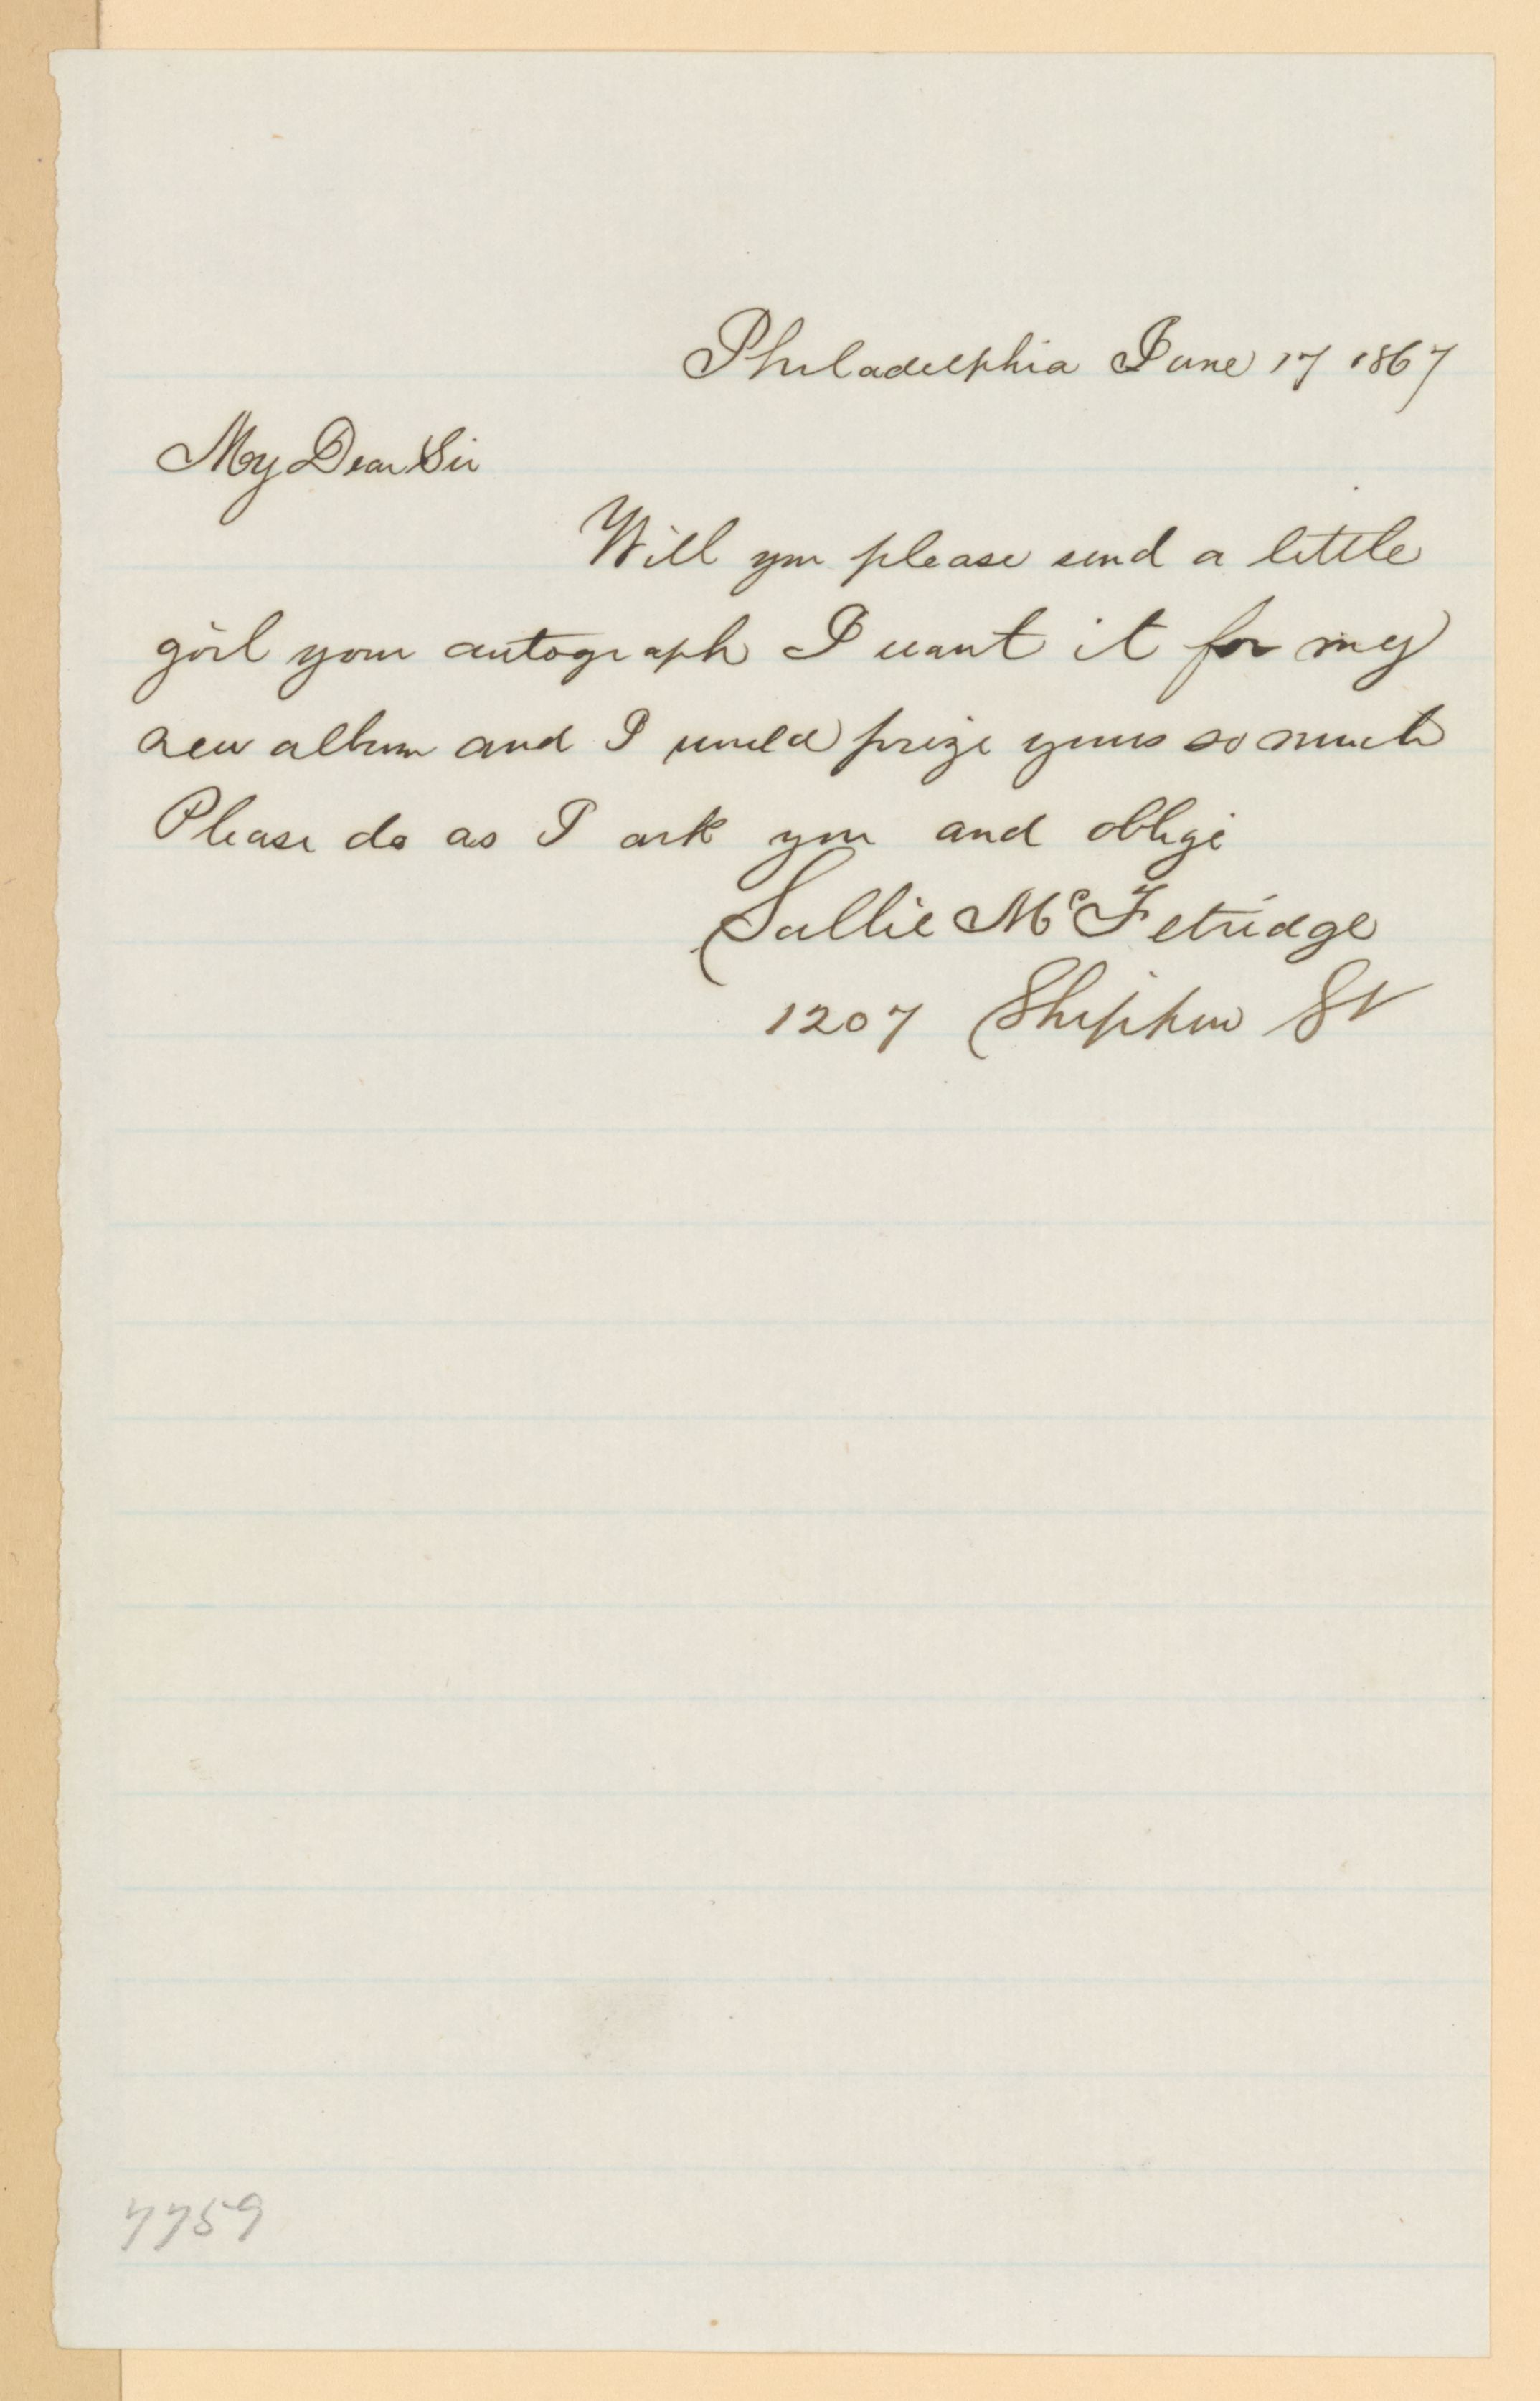 Philadelphia June 17 1867
My Dear Sir
Will you please send a little
girl your autograph I want it for my
new album and I would prize yours so much
Please do as I ask you and oblige
Sallie McFetridge
1207 Shippen St
7759